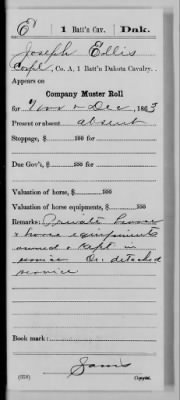 E 1 Batt'n Cav. Dak.
Joseph Ellis
Corpl, Co. A, 1 Batt'n Dakota Cavalry.
Appears on
Company Muster Roll
for Nov & Dec, 1863
Present or absent absent
Stoppage, $ 100 for
Due Gov't, $ 100 for
Valuation of horse, $ 100
Valuation of horse equipments, $ 100
Remarks: Private horse
& horse equipments
owned & kept in
service On detached
service
Book mark:
(858) Copyist.